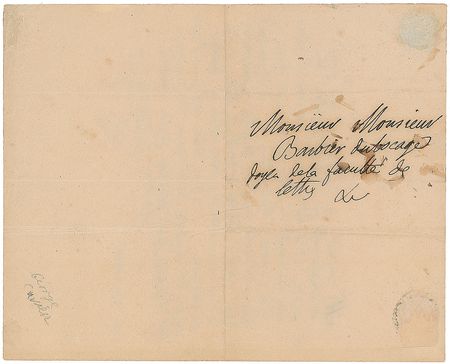 Monsieur Monsieur
Barbier dubocage
doyen de la faculté de
lettres
George
Cuvier